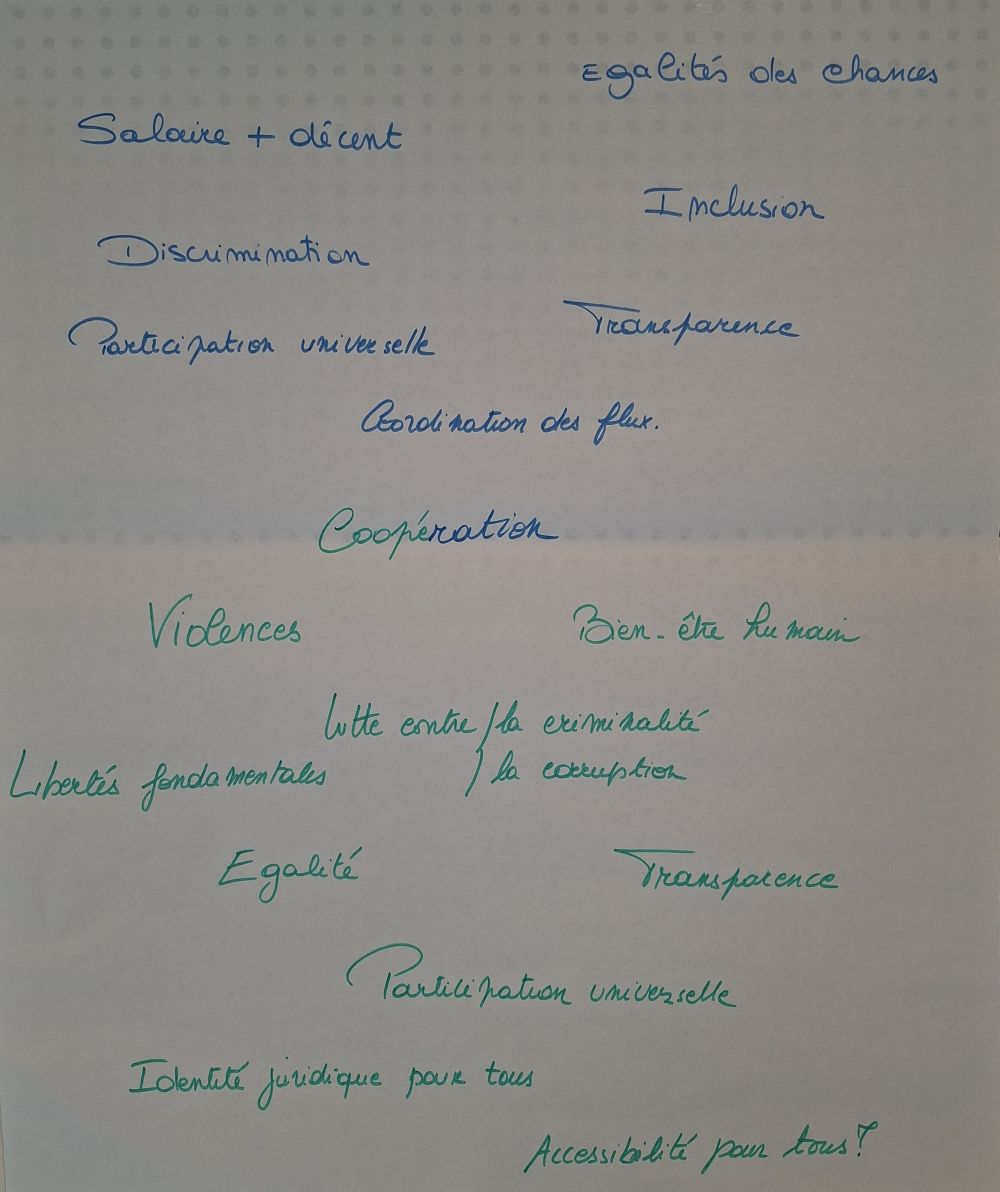 Egalités des chances
Salaire + décent
Inclusion
Discrimination
Transparence
Participation universelle
Coordination des flux.
Coopération
Violences
Bien-être humain
lutte contre / la criminalité
Libertés fondamentales
/ la corruption
Egalité
Transparence
Participation universelle
Identité juridique pour tous
Accessibilité pour tous?